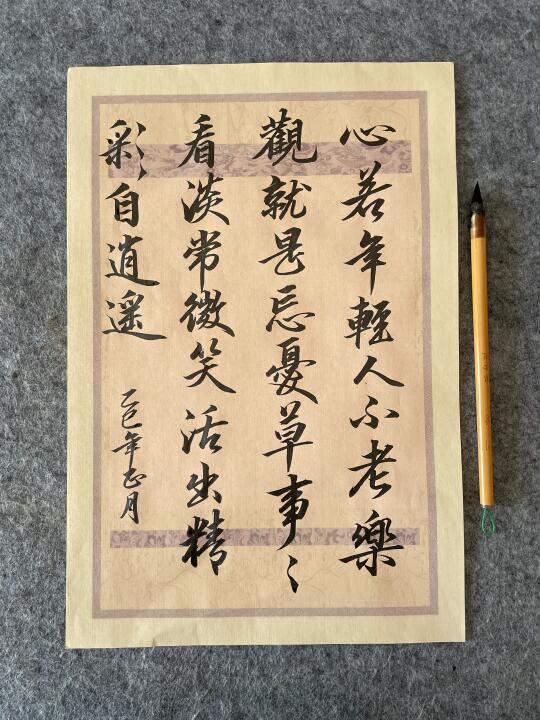 心若年輕人不老樂
觀就是忘憂草事〻
看淡常微笑活出精
彩自逍遥
乙巳年正月